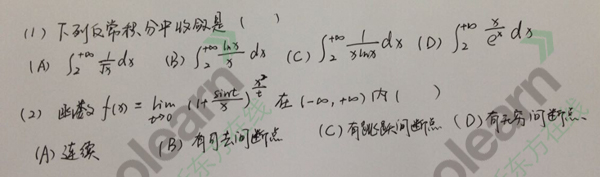 (1) 下列反常积分中收敛是 ( )
(A) ∫₂^{+∞} 1/√x dx (B) ∫₂^{+∞} lnx/x dx (C) ∫₂^{+∞} 1/(xlnx) dx (D) ∫₂^{+∞} x/e^x dx
(2) 函数 f(x) = lim_{t→0} (1+ sint/x)^{x²/t} 在 (-∞, +∞) 内 ( )
(A) 连续 (B) 有可去间断点 (C) 有跳跃间断点 (D) 有无穷间断点.
olearn
新东方在线